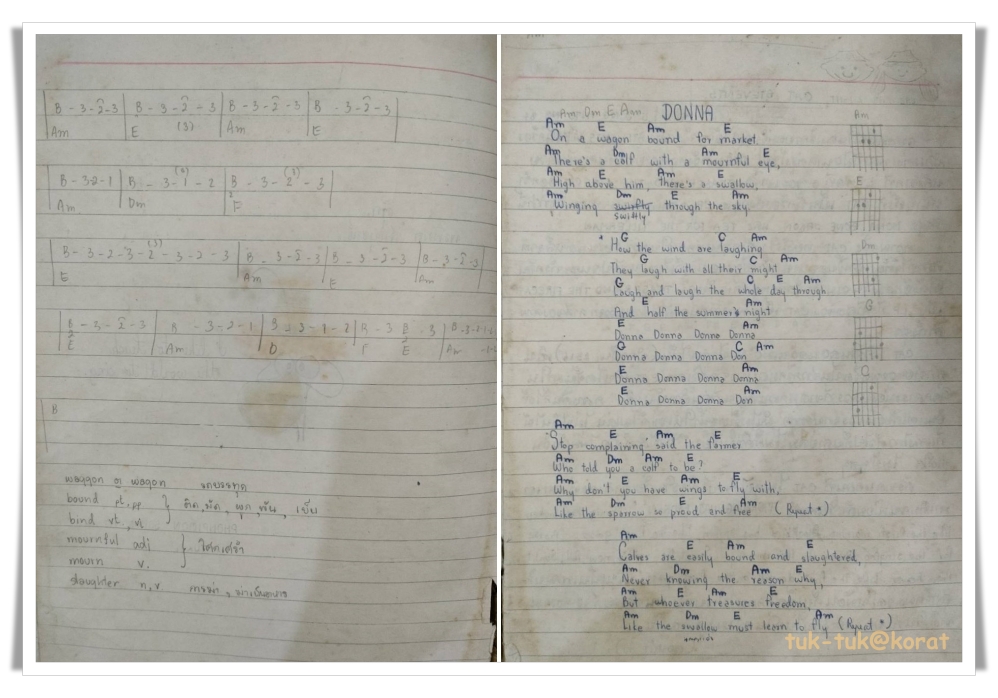 B - 3 - 2 - 3 | B - 3 - 2 - 3 | B - 3 - 2 - 3 | B - 3 - 2 - 3
Am E (3) Am E
B - 3-2-1 | B - 3 - 1 - 2 | B - 3 - 2 - 3
Am Dm F
B - 3 - 2 - 3 - 2 - 3 - 2 - 3 | B - 3 - 2 - 3 | B - 3 - 2 - 3 | B - 3 - 2 - 3
E Am E Am
B - 3 - 2 - 3 | B - 3 - 2 - 1 | B - 3 - 1 - 2 | B - 3 B - 3
E Am D F E Am
B
waggon or wagon รถบรรทุก
bound pt, pp
bind vt, vi ติด, มัด, ผูก, พัน, เย็บ
mournful adj
mourn v. โศกเศร้า
slaughter n, v การฆ่า
Am Dm E Am DONNA
Am E Am E
On a wagon bound for market
Am Dm Am E
There's a calf with a mournful eye,
Am E Am E
High above him, there's a swallow,
Am Dm E Am
Winging swiftly through the sky.
swiftly
* G C Am
How the wind are laughing
G C Am
They laugh with all their might
G C E Am
Laugh and laugh the whole day through
E Am
And half the summer's night
E Am
Donna Donna Donna Donna
G C Am
Donna Donna Donna Don
E Am
Donna Donna Donna Donna
E Am
Donna Donna Donna Don
Am E Am E
Stop complaining said the farmer
Am Dm Am E
Who told you a calf to be?
Am E Am E
Why don't you have wings to fly with,
Am Dm E Am
Like the sparrow so proud and free (Repeat *)
Am E Am E
Calves are easily bound and slaughtered,
Am Dm Am E
Never knowing the reason why,
Am E Am E
But whoever treasures freedom,
Am Dm E Am
Like the swallow must learn to fly (Repeat *)
Am
E
Dm
G
C
tuk-tuk@korat